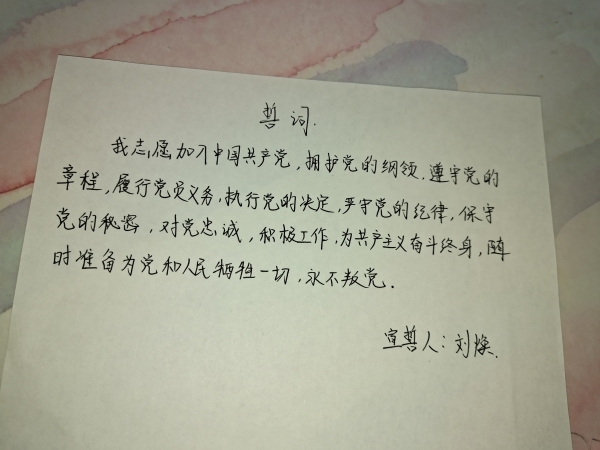 誓词.
我志愿加入中国共产党，拥护党的纲领.遵守党的
章程，履行党员义务，执行党的决定，严守党的纪律，保守
党的秘密，对党忠诚，积极工作，为共产主义奋斗终身，随
时准备为党和人民牺牲一切，永不叛党.
宣誓人：刘焕.